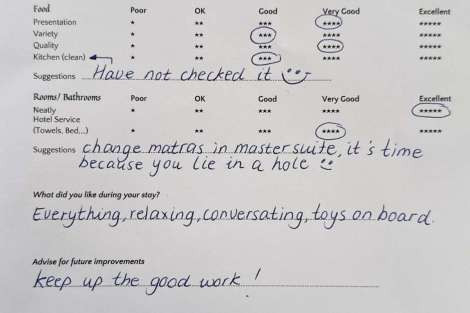 Food Poor OK Good Very Good Excellent
Presentation * ** *** **** *****
Variety * ** *** **** *****
Quality * ** *** **** *****
Kitchen (clean) * ** *** **** *****
Suggestions Have not checked it
Rooms/ Bathrooms Poor OK Good Very Good Excellent
Neatly * ** *** **** *****
Hotel Service
(Towels, Bed...) * ** *** **** *****
Suggestions change matras in mastersuite, it's time
because you lie in a hole
What did you like during your stay?
Everything, relaxing, conversating, toys on board.
Advise for future improvements
keep up the good work!